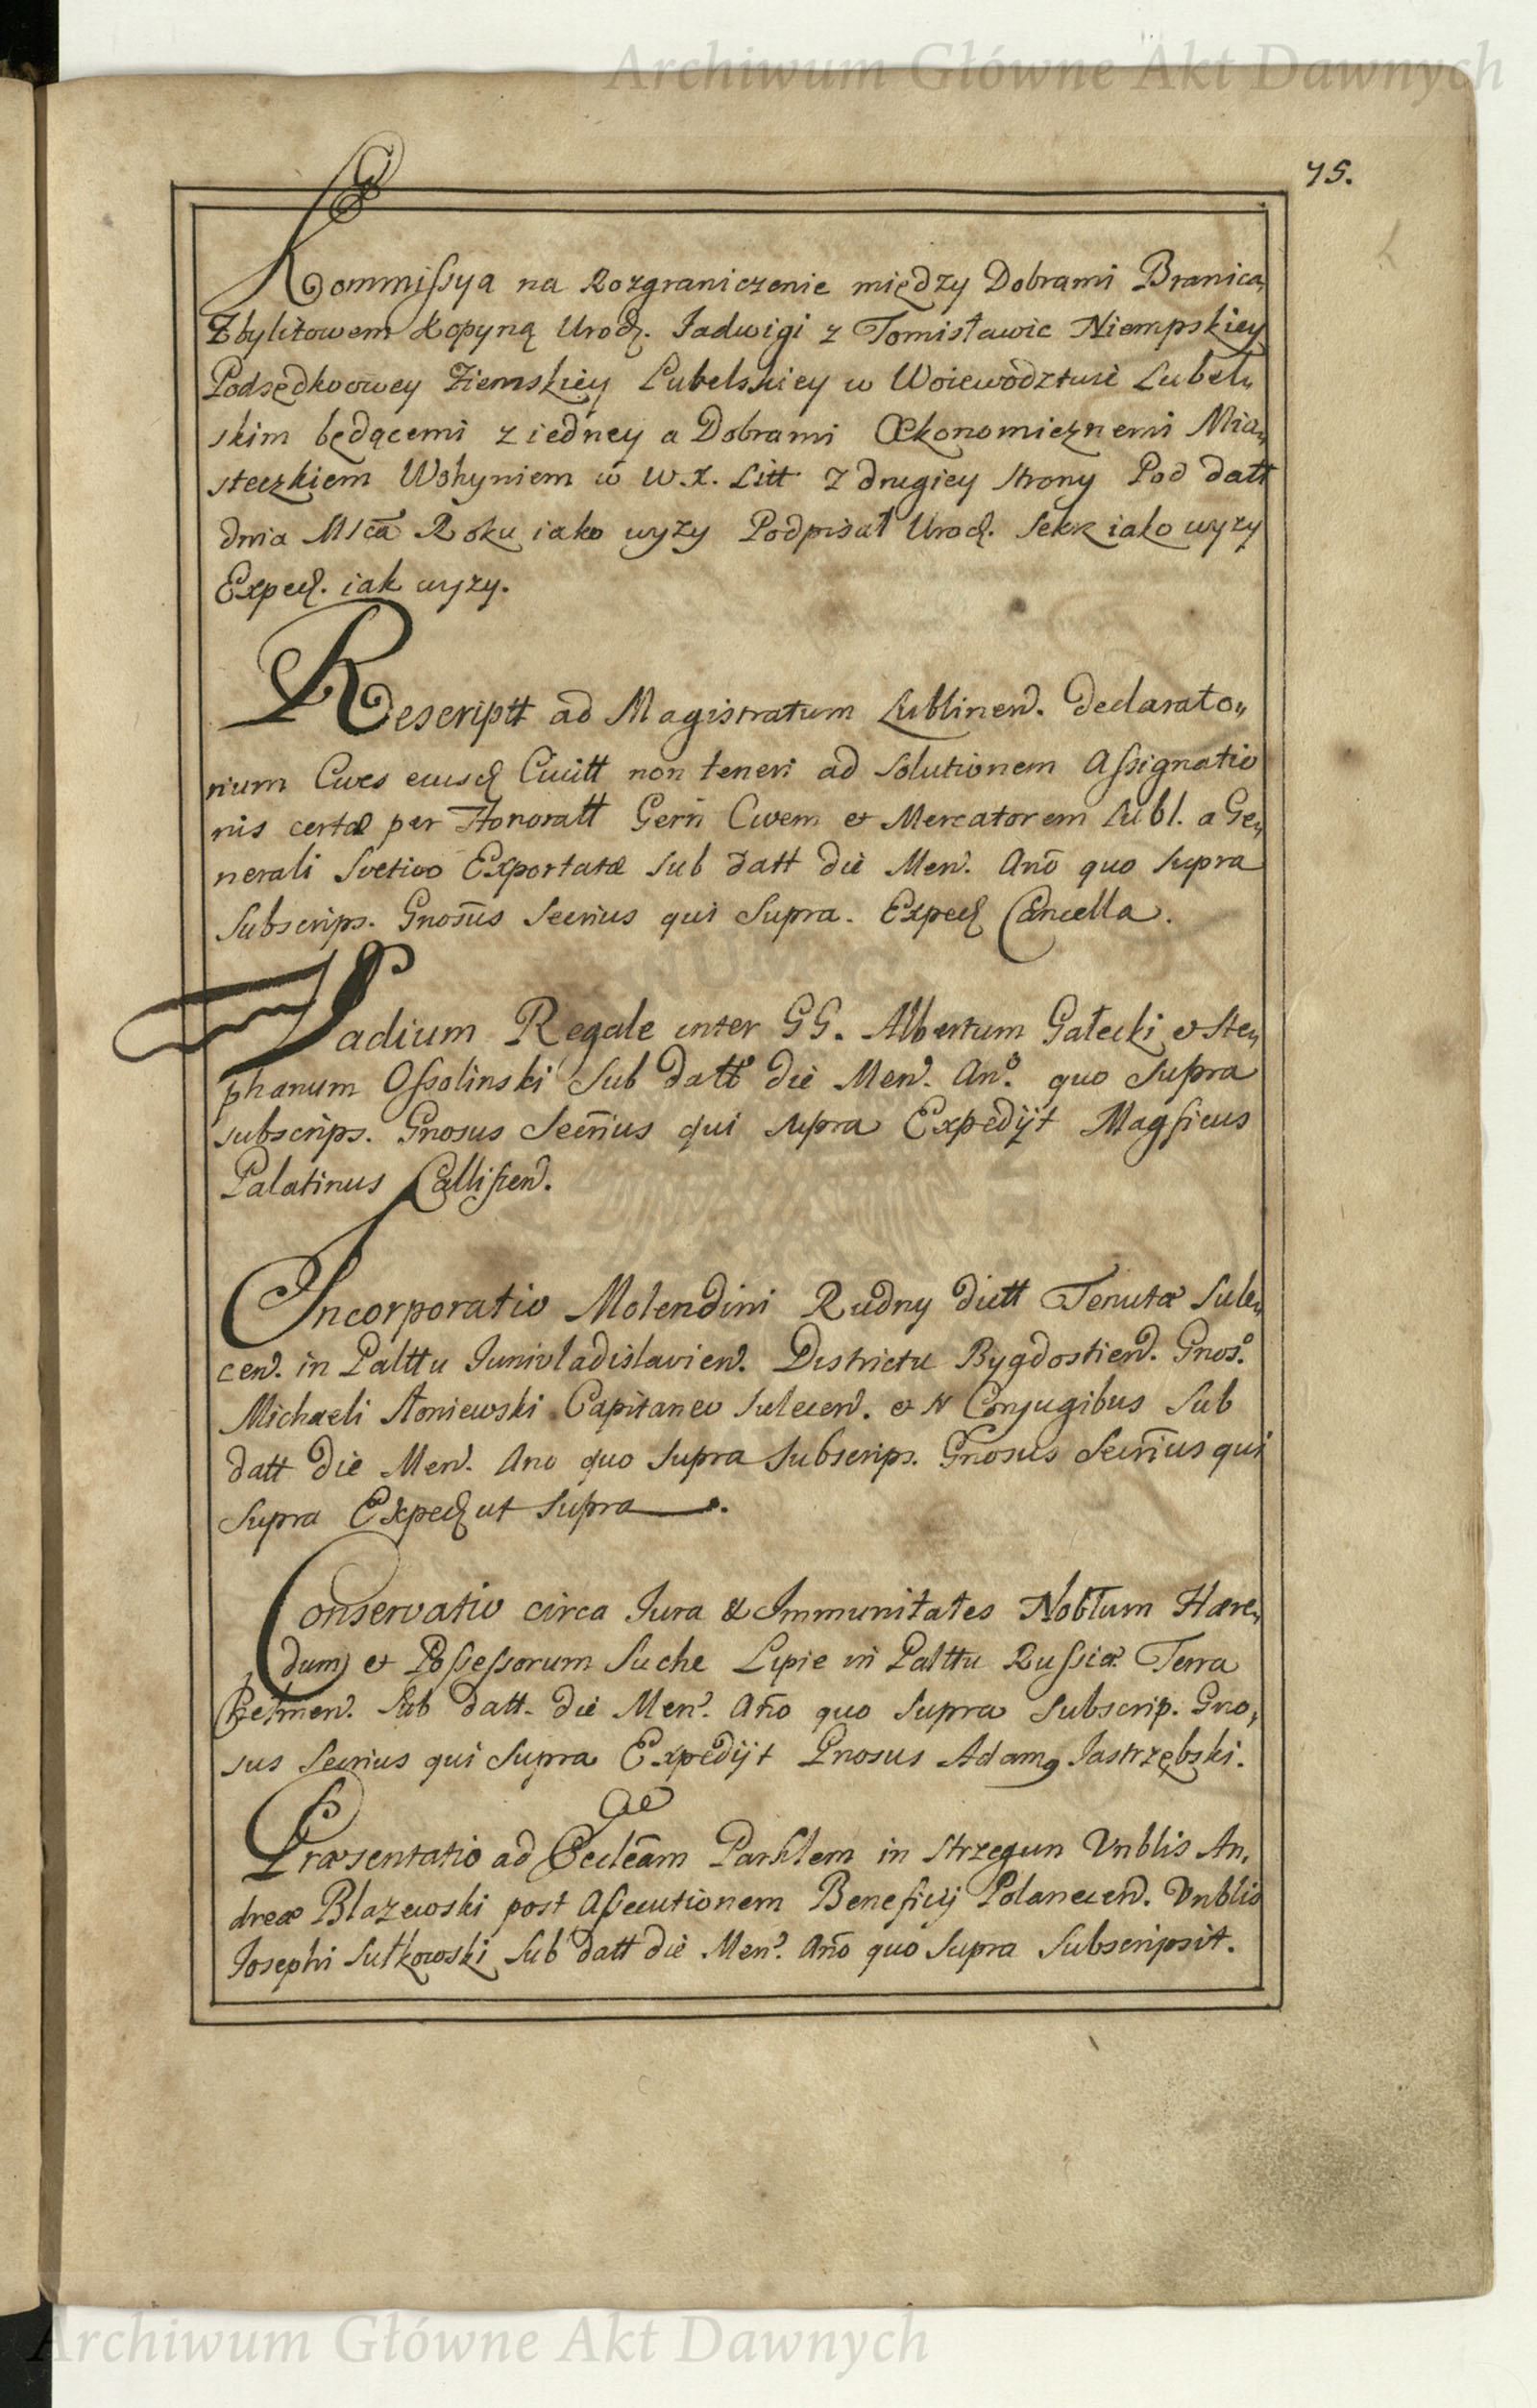 Archiwum Główne Akt Dawnych
75.
Kommissya na Rozgraniczenie między Dobrami Branica,
Zbylitowem Kopyną Urodz. Jadwigi z Tomisławic Niempskiey
Podsędkowey Ziemskiey Lubelskiey w Woiewodztwie Lubel„
skim będącemi z iedney a Dobrami Œkonomicznemi Mia„
steczkiem Wohyniem w W. X. Litt z drugiey strony Pod datt
dnia Msca Roku iako wyzy Podpisał Urodz. Sekr iako wyzy
Exped. iak wyzy.
Rescriptt ad Magistratum Lublinen. declarato„
rium Cives eiusd Civitt non teneri ad solutionem Assignatio
nis certæ per Honoratt Gerri Civem et Mercatorem Lubl. a Ge„
nerali Svetico Exportatæ sub datt die Men. Anō quo supra
subscrips. Gnosus Secrius qui supra. Exped Cancella.
Vadium Regale inter GG. Albertum Gałecki et Ste„
phanum Ossolinski sub datt die Men. Anº. quo supra
subscrips. Gnosus Secrius qui supra Expedijt Magficus
Palatinus Callissien.
Incorporatio Molendini Rudny dictt Tenutæ Sule„
cen. in Palttu Junivladislavien. Districtu Bygdostien. Gnosº.
Michaeli Słoniewski Capitaneo Sulecen. et N Conjugibus sub
datt die Men. Ano quo supra subscrips. Gnosus Secrius qui
supra Exped ut supra.
Conservatio circa Jura & Immunitates Nobłum Hære„
dum et Possessorum Suche Lipie in Palttu Russiæ Terra
Chełmen. sub datt. die Men. Año quo supra subscrip. Gno„
sus Secrius qui supra Expedijt Gnosus Adamg Jastrzębski.
æ
Præsentatio ad Eccleām Parhlem in Strzegun Vnblis An„
dreæ Blazewski post Assecutionem Beneficij Polanecen. Vnblis
Josephi Sułkowski sub datt die Men. Anō quo supra subscripsit.
Archiwum Główne Akt Dawnych